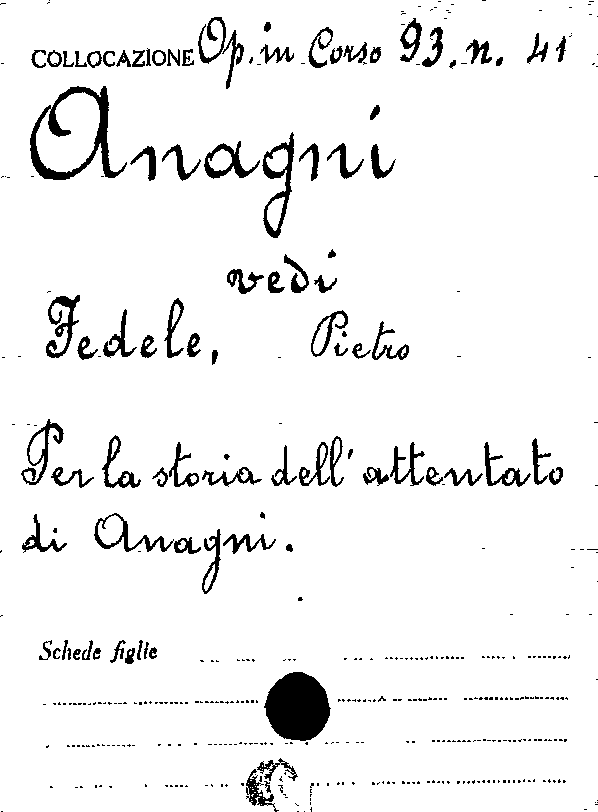 COLLOCAZIONE Op. in Corso 93. n. 41
Anagni
vedi
Fedele, Pietro
Per la storia dell' attentato
di Anagni.
Schede figlie